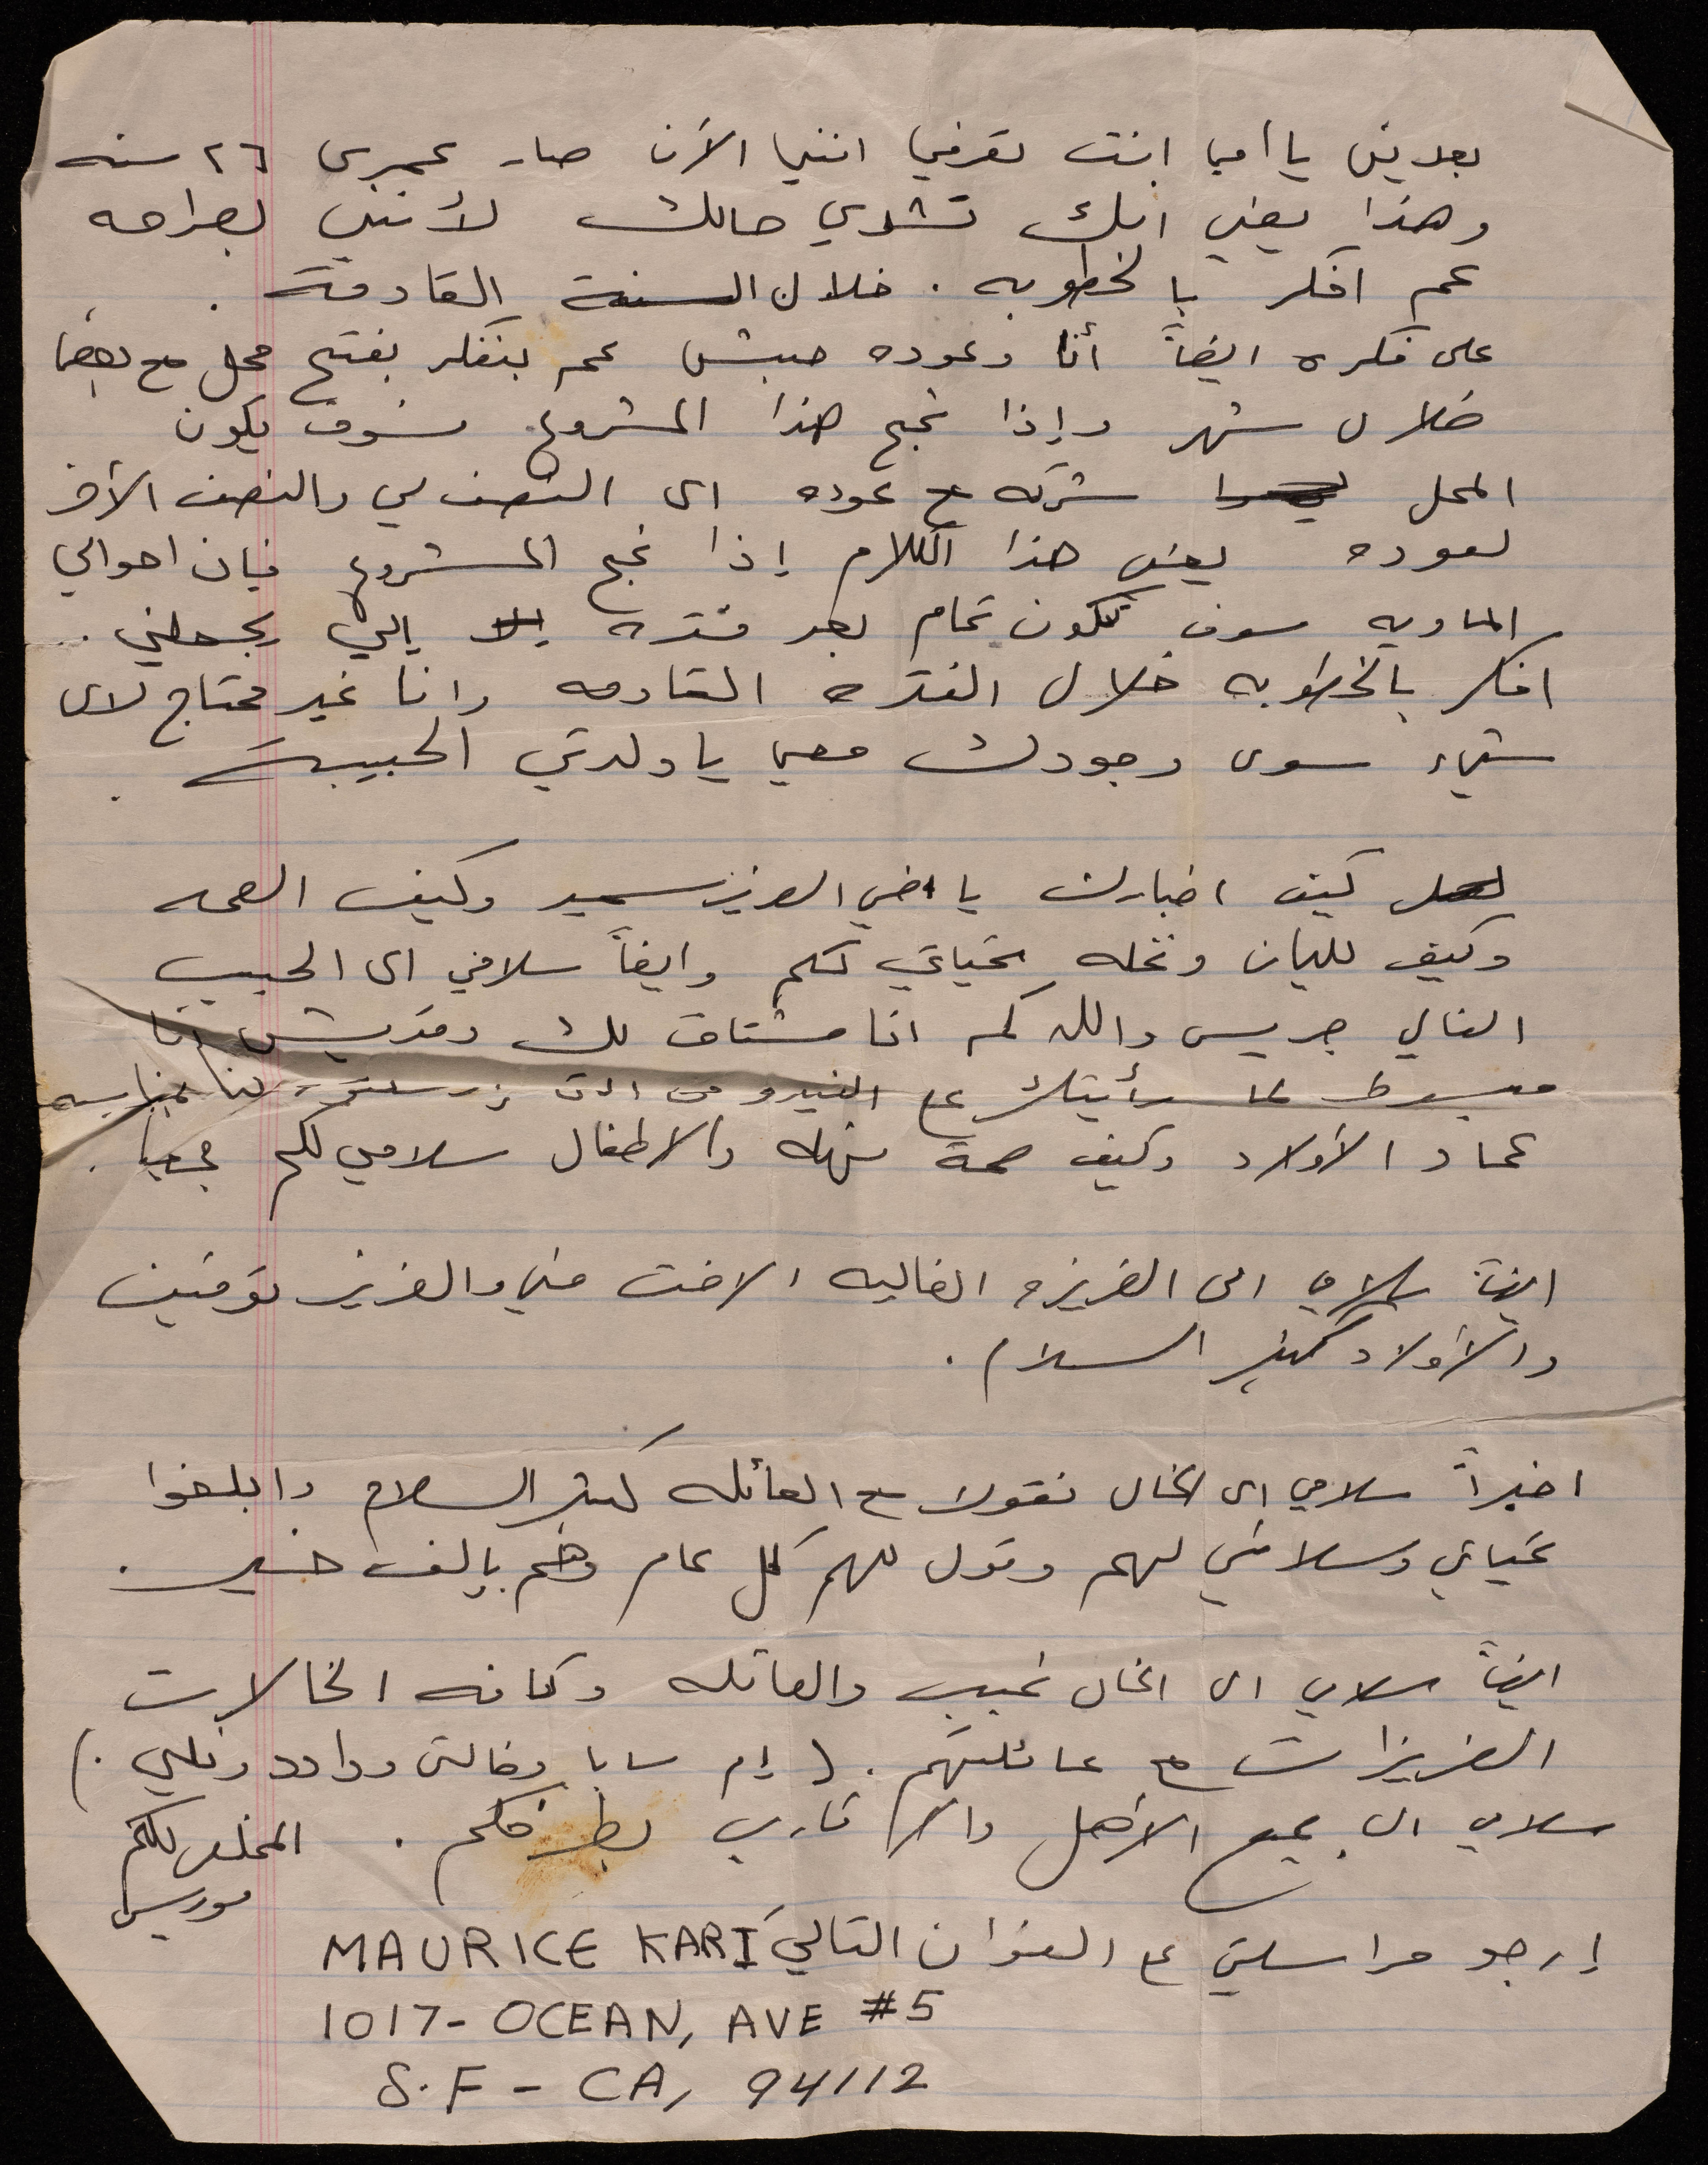 بعدين يا أمي انت تعرفي انني الآن صار عمري ٢٦ سنه
وهذا يعني انك تشدي حالك لأنني بصراحه
عم افكر بالخطوبه . خلال السنة القادمة .
على فكره ايضاً أنا وعوده حبش عم بنفكر بفتح محل مع بعضنا
خلال شهر وإذا نجح هذا المشروع سوف يكون
المحل شركه مع عوده اى النصف لي والنصف الآخر
لعوده يعني هذا الكلام إذا نجح المشروع فإن احوالي
الماديه سوف تكون تمام بعد فتره إلي يجعلني .
افكر بالخطوبه خلال الفتره القادمه وانا غير محتاج لاى
شيء سوى وجودك معي يا ولدتي الحبيبة .
كيف اخبارك يا اخي العزيز سمير وكيف الصحه
وكيف لليان ونخله تحياتي لكم وايضاً سلامي الى الحبيب
الغالي جريس والله كم انا مشتاق لك وقديش انا
مبسوط لما رأيتك ع الفيديو
عماد الأولاد وكيف صحة نهله والاطفال سلامي لكم جميعاً .
ايضاً سلامي الى العزيزه الغاليه الاخت منى والعزيز توفيق
والأولاد كثير السلام .
اخيراً سلامي الى الخال نقولا مع العائله كثير السلام وابلغوا
تحياتي وسلامي لهم وقول لهم كل عام وهم بإلف خير .
ايضاً سلامي الى الخال نجيب والعائله وكافه الخالات
العزيزات مع عائلتهم . ( إم سابا وخالتى ووداد ونللي . )
سلامي الى جميع الأهل والأقارب بطرفكم . المخلص لكم
موريس
إرجو مراسلتي ع العنوان التالي MAURICE KARI
1017- OCEAN, AVE #5
S.F - CA, 94112